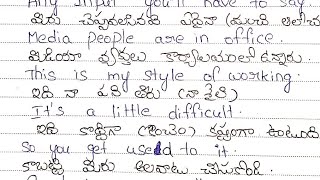 Any Input you'll have to say.
మీరు చెప్పవలసినది ఏదైనా (ముందే ఆలోచ
Media people are in office.
మీడియా వ్యక్తులు కార్యాలయంలో ఉన్నారు.
This is my style of working.
ఇది నా పని తీరు (నా శైలి)
It's a little difficult.
ఇది కొద్దిగా (కొంచెం) కష్టంగా ఉంటుంది
so you get used to it.
కాబట్టి మీరు అలవాటు చేసుకోండి.